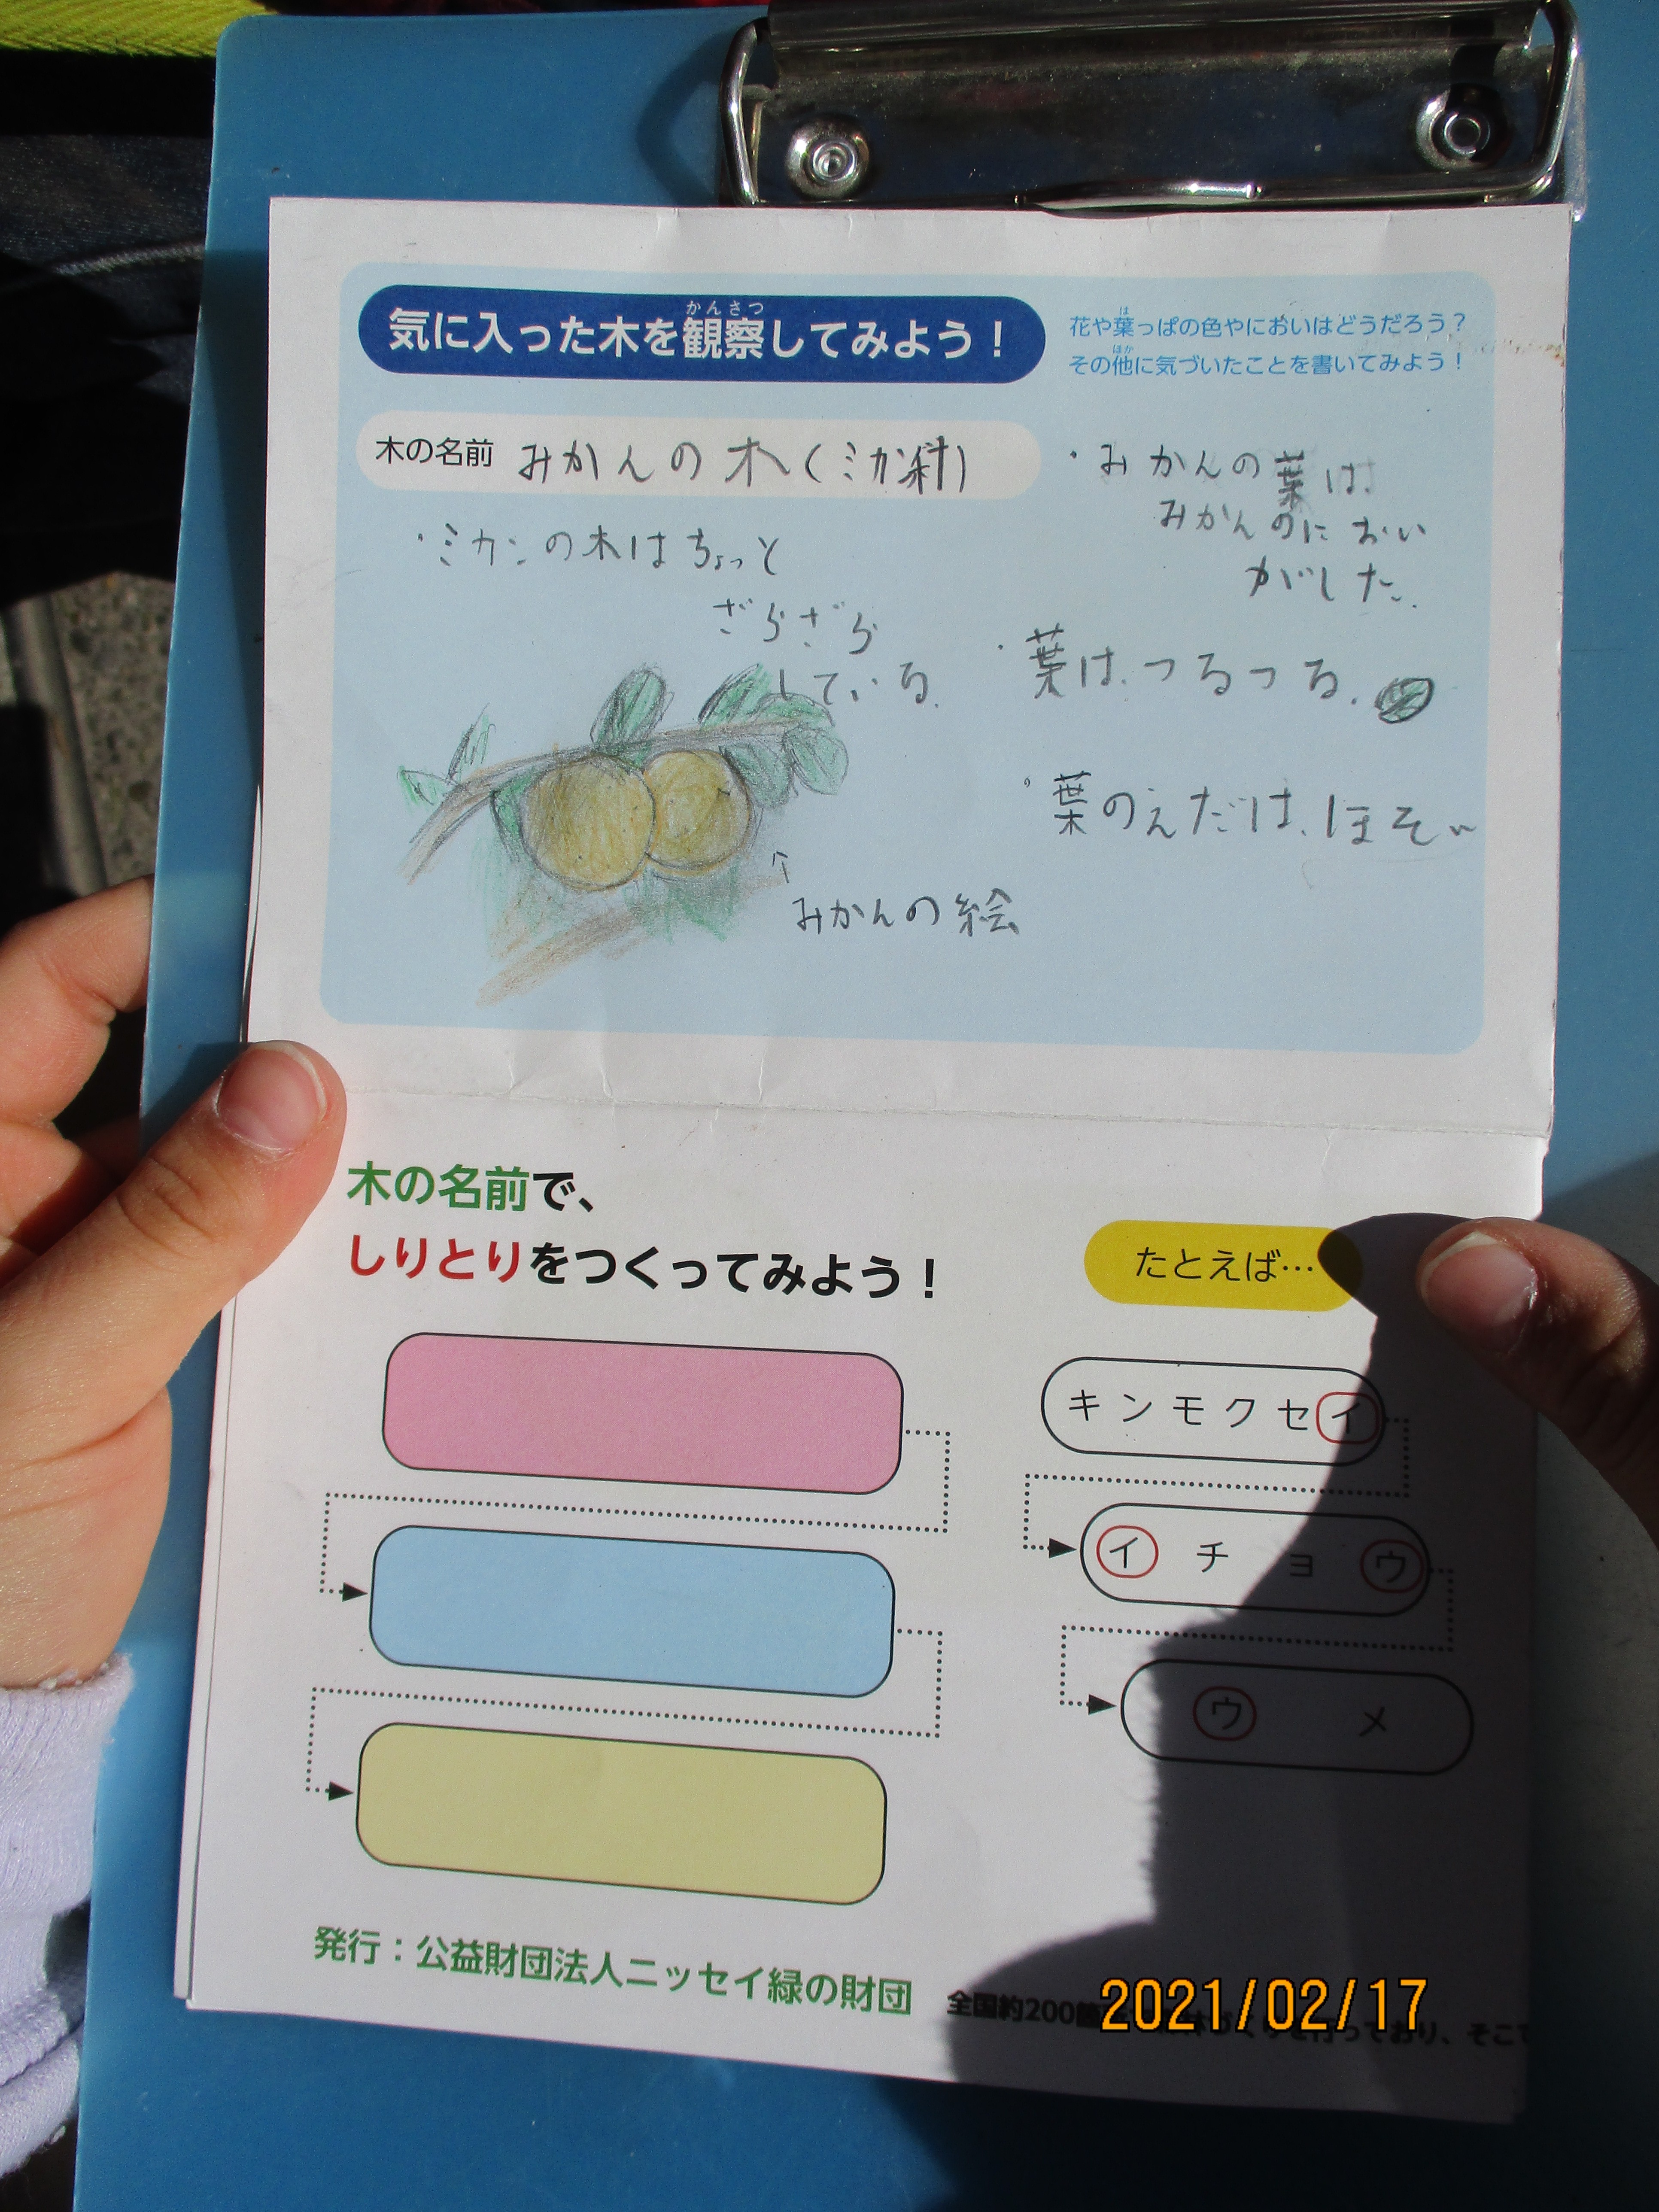 気に入った木を観察してみよう！
かんさつ
花や葉っぱの色やにおいはどうだろう？
は
その他に気づいたことを書いてみよう！
ほか
木の名前 みかんの木(ミカン科)
・ミカンの木はちょっと
ざらざら
している.
↑
みかんの絵
・みかんの葉は
みかんのにおい
がした.
・葉は、つるつる.
・葉のえだは、ほそい
木の名前で、
しりとりをつくってみよう！
たとえば…
キンモクセイ
イチョウ
ウメ
発行：公益財団法人ニッセイ緑の財団
全国約200
ており、そこ
2021/02/17